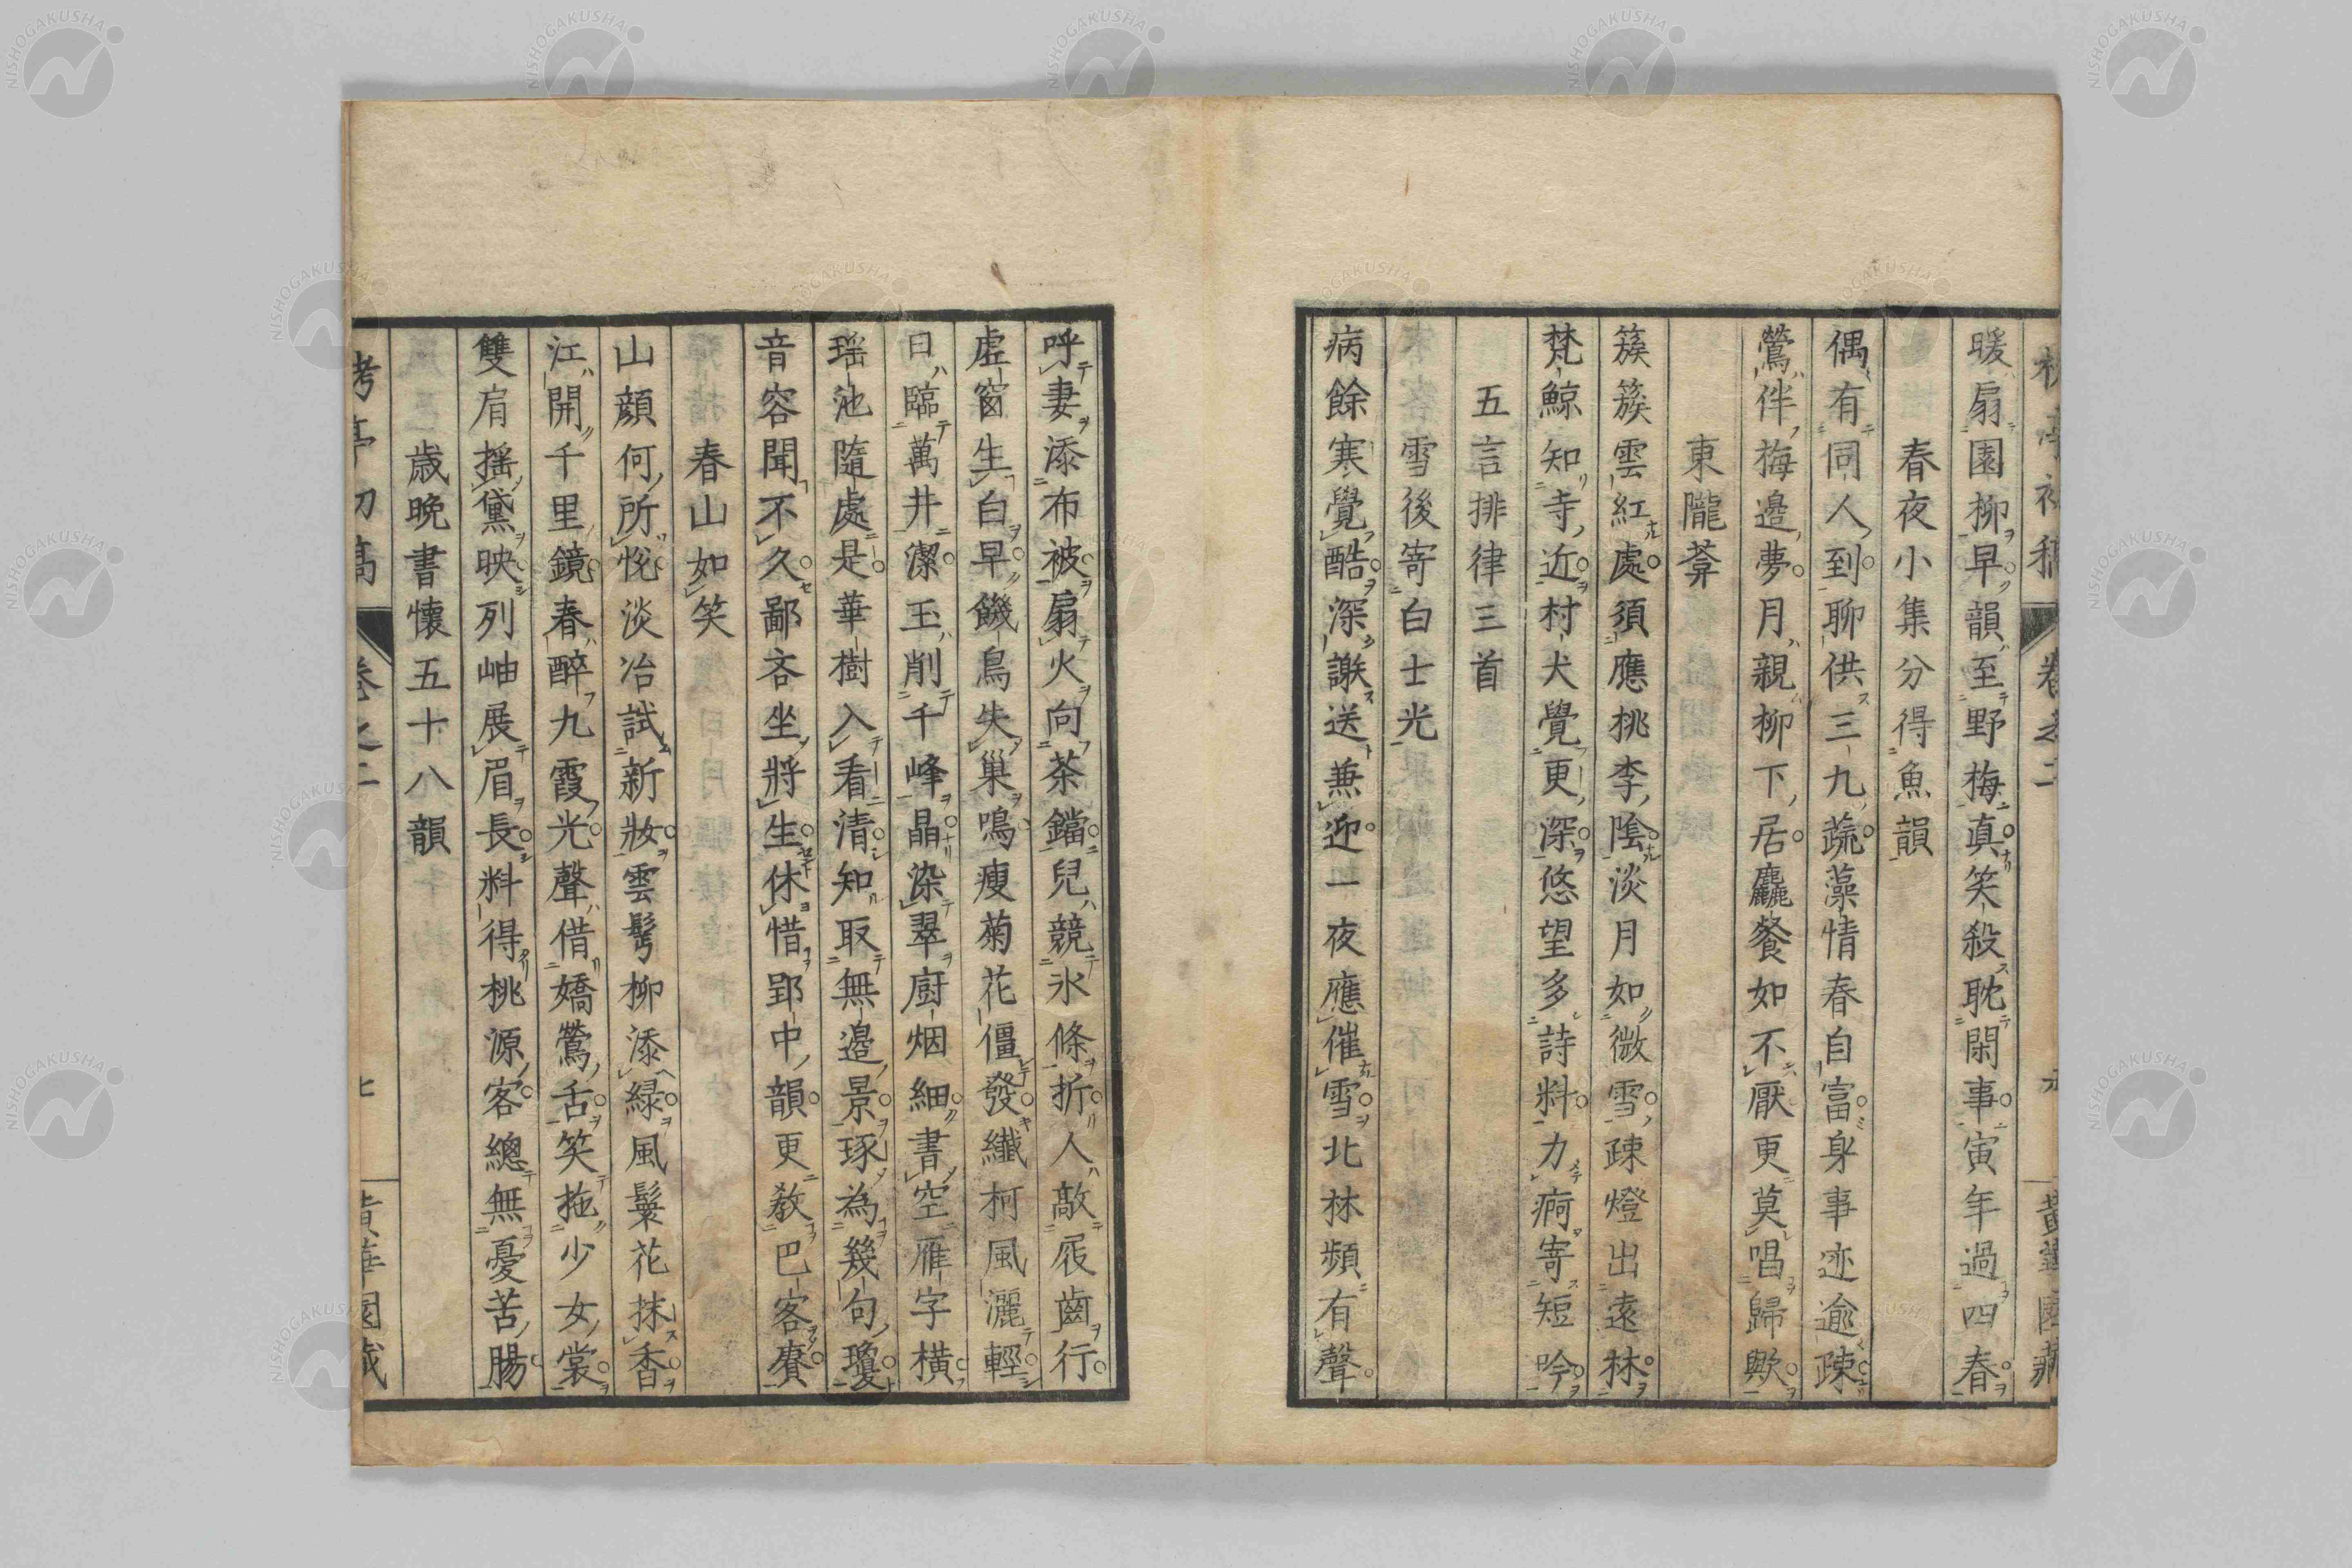 暖扇園柳早韻至野梅真笑殺耽閑事寅年過四春
春夜小集分得魚韻
偶有同人到聊供三九蔬藻情春自富身事迹逾疎
鶯伴梅邊夢月親柳下居麤餐如不厭更莫唱歸歟
東隴莽
簇簇雲紅處須應桃李陰淡月如微雪疎燈出遠林
梵鯨知寺近村犬覺更深悠望多詩料力痾寄短吟
五言排律三首
雪後寄白士光
病餘寒覺酷深謝送兼迎一夜應催雪北林頻有聲
呼妻添布被扇火向茶鐺兒競氷條折人敲屐齒行
虛窗生白早饑鳥失巢鳴瘦菊花僵發纖柯風灑輕
日臨萬井潔玉削千峰晶染翠廚烟細書空雁字橫
瑶池隨處是華樹入看清知取無邊景琢為幾句瓊
音容聞不久鄙吝坐將生休惜郢中韻更教巴客賡
春山如笑
山顔何所悅淡冶試新妝雲髩柳添緑風鬟花抹香
江開千里鏡春醉九霞光聲借嬌鶯舌笑拖少女裳
雙肩搖黛映列岫展眉長料得桃源客總無憂苦腸
歲晩書懷五十八韻